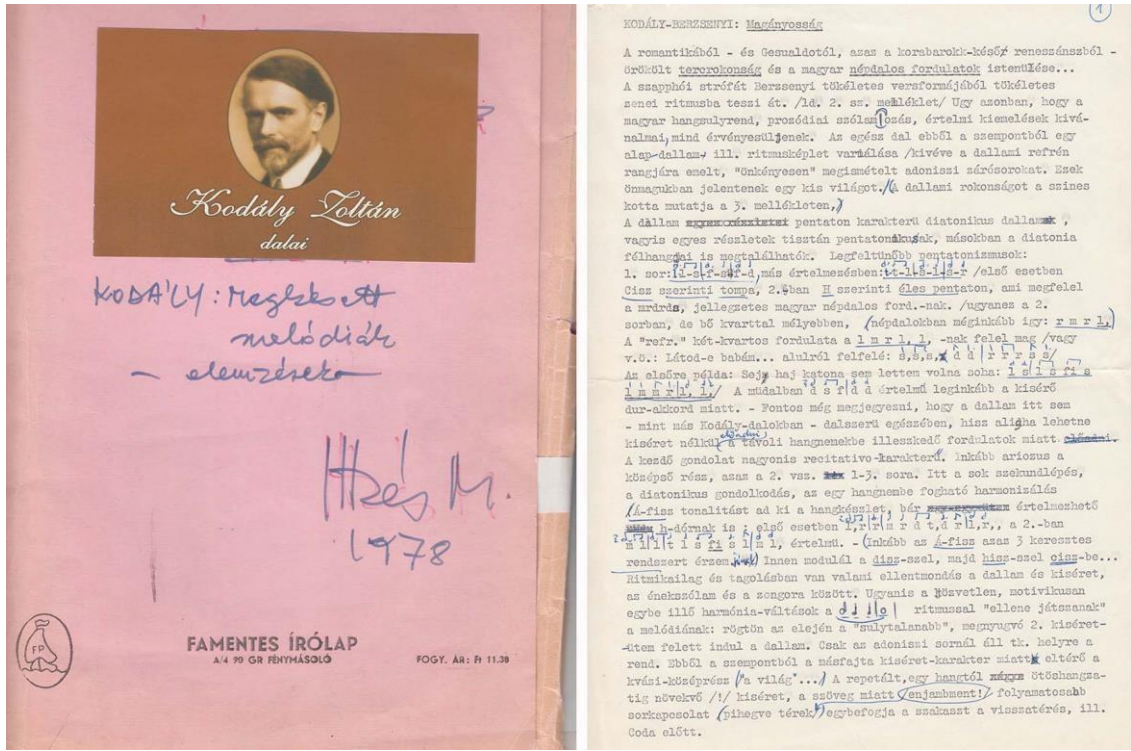 Kodály Zoltán
dalai
KODÁLY: Megkésett
melódiák
- elemzések
Ittzés M.
1978
FP
FAMENTES ÍRÓLAP
A/4 90 GR FÉNYMÁSOLÓ
FOGY. ÁR: Ft 11.30
1
KODÁLY-BERZSENYI: Magányosság
A romantikából - és Gesualdotól, azaz a korabarokk-késő reneszánszból -
örökölt tercrokonság és a magyar népdalos fordulatok istenülése...
A szapphói strófát Berzsenyi tökéletes versformájából tökéletes
zenei ritmusba teszi át. /ld. 2. sz. melléklet/ Ugy azonban, hogy a
magyar hangsulyrend, prozódiai szólamozás, értelmi kiemelések kivá-
nalmai, mind érvényesüljenek. Az egész dal ebből a szempontból egy
alap-dallam, ill. ritmusképlet variálása /kivéve a dallami refrén
rangjára emelt, "önkényesen" megismételt adoniszi zárósorokat. Ezek
önmagukban jelentenek egy kis világot./ (A dallami rokonságot a szines
kotta mutatja a 3. mellékleten.)
A dallam pentaton karakterü diatonikus dallam,
vagyis egyes részletek tisztán pentatonikusak, másokban a diatonia
félhangjai is megtalálhatók. Legfeltünőbb pentatonizmusok:
1. sor: l-s-f-s-f-d, más értelmezésben: t-l-s-l-s-r /első esetben
Cisz szerinti tompa, 2.-ban H szerinti éles pentaton, ami megfelel
a mrdrds, jellegzetes magyar népdalos ford.-nak. /ugyanez a 2.
sorban, de bő kvarttal mélyebben, (népdalokban méginkább igy: r m r l,)
A "refr." két-kvartos fordulata a l m r l, l, -nak felel mag /vagy
v.ö.: Látod-e babám... alulról felfelé: s,s,s, d d r r r s s/
Az elsőre példa: Sej, haj katona sem lettem volna soha: l s l s fi s
l m m r l, l,/ A müdalban d s f d d értelmü leginkább a kisérő
dur-akkord miatt. - Fontos még megjegyezni, hogy a dallam itt sem
- mint más Kodály-dalokban - dalszerü egészében, hisz aligha lehetne
kiséret nélkül előadni a távoli hangnemekbe illeszkedő fordulatok miatt.
A kezdő gondolat nagyonis recitativo-karakterü. Inkább ariozus a
középső rész, azaz a 2. vsz. 1-3. sora. Itt a sok szekundlépés,
a diatonikus gondolkodás, az egy hangnembe fogható harmonizálás
(Á-fisz tonalitást ad ki a hangkészlet, bár értelmezhető
h-dórnak is ; első esetben l,r r m r d t,d r l,r,, a 2.-ban
m l l t l s fi s l m l, értelmü. - (Inkább az Á-fisz azaz 3 keresztes
rendszert érzem.) Innen modulál a disz-szel, majd hisz-szel cisz-be...
Ritmikailag és tagolásban van valami ellentmondás a dallam és kiséret,
az énekszólam és a zongora között. Ugyanis a közvetlen, motivikusan
egybe illő harmónia-váltások a ritmussal "ellene játszanak"
a melódiának: rögtön az elején a "sulytalanabb", megnyugvó 2. kiséret-
-ütem felett indul a dallam. Csak az adoniszi sornál áll tk. helyre a
rend. Ebből a szempontból a másfajta kiséret-karakter miatt eltérő a
kvázi-középrész ("a világ"...) A repetált, egy hangtól ötöshangza-
tig növekvő /!/ kiséret, a szöveg miatt (enjambment!) folyamatosabb
sorkapcsolat (pihegve térek) egybefogja a szakaszt a visszatérés, ill.
Coda előtt.